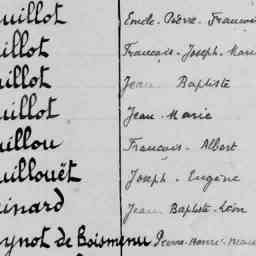 uillot Emile-Pierre-Françoi
uillot François-Joseph-Mari
uillot Jean Baptiste
uillot Jean-Marie
uillou François-Albert
uillouët Joseph-Eugène
uinard Jean Baptiste-Léon
uynot de Boismenu Pierre-Henri-